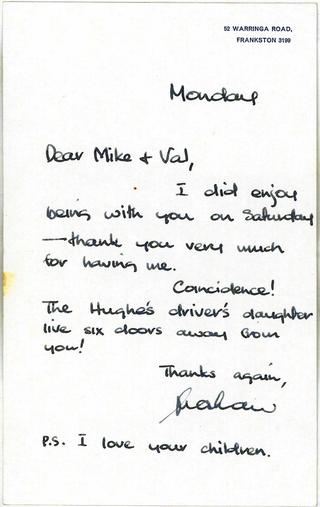 52 WARRINGA ROAD,
FRANKSTON 3199
Monday
Dear Mike & Val,
I did enjoy
being with you on Saturday
—thank you very much
for having me.
Coincidence!
The Hughe's driver's daughter
live six doors away from
you!
Thanks again,
Graham
P.S. I love your children.